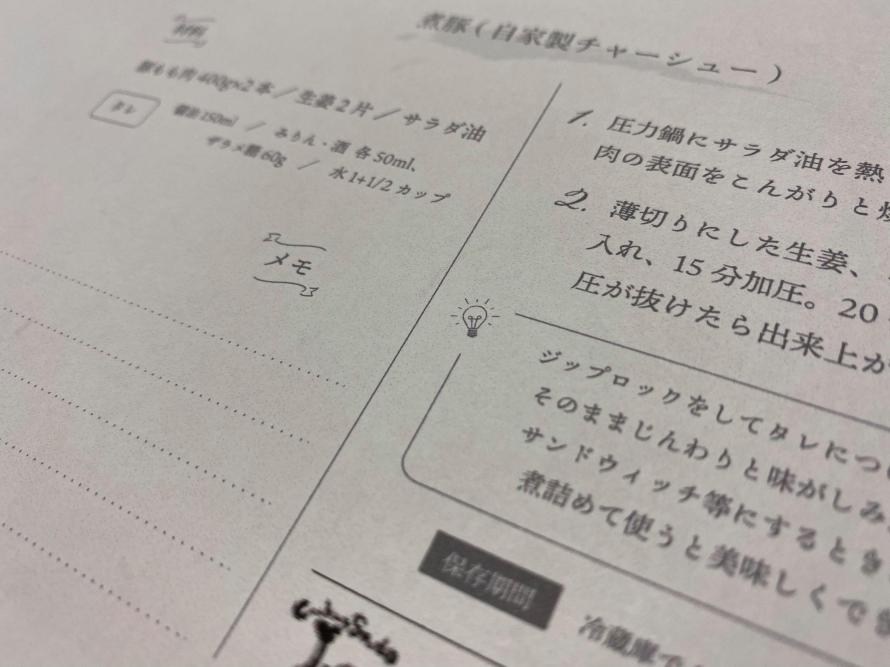 煮豚(自家製チャーシュー)
材料
豚もも肉400g×2本／生姜2片／サラダ油
タレ
醤油150ml ／ みりん・酒 各50ml、
ザラメ糖60g ／ 水1+1/2カップ
メモ
1. 圧力鍋にサラダ油を熱
肉の表面をこんがりと焼
2. 薄切りにした生姜、
入れ、15分加圧。20
圧が抜けたら出来上が
ジップロックをしてタレにつ
そのままじんわりと味がしみ
サンドウィッチ等にするとき
煮詰めて使うと美味しくで
保存期間
冷蔵庫で